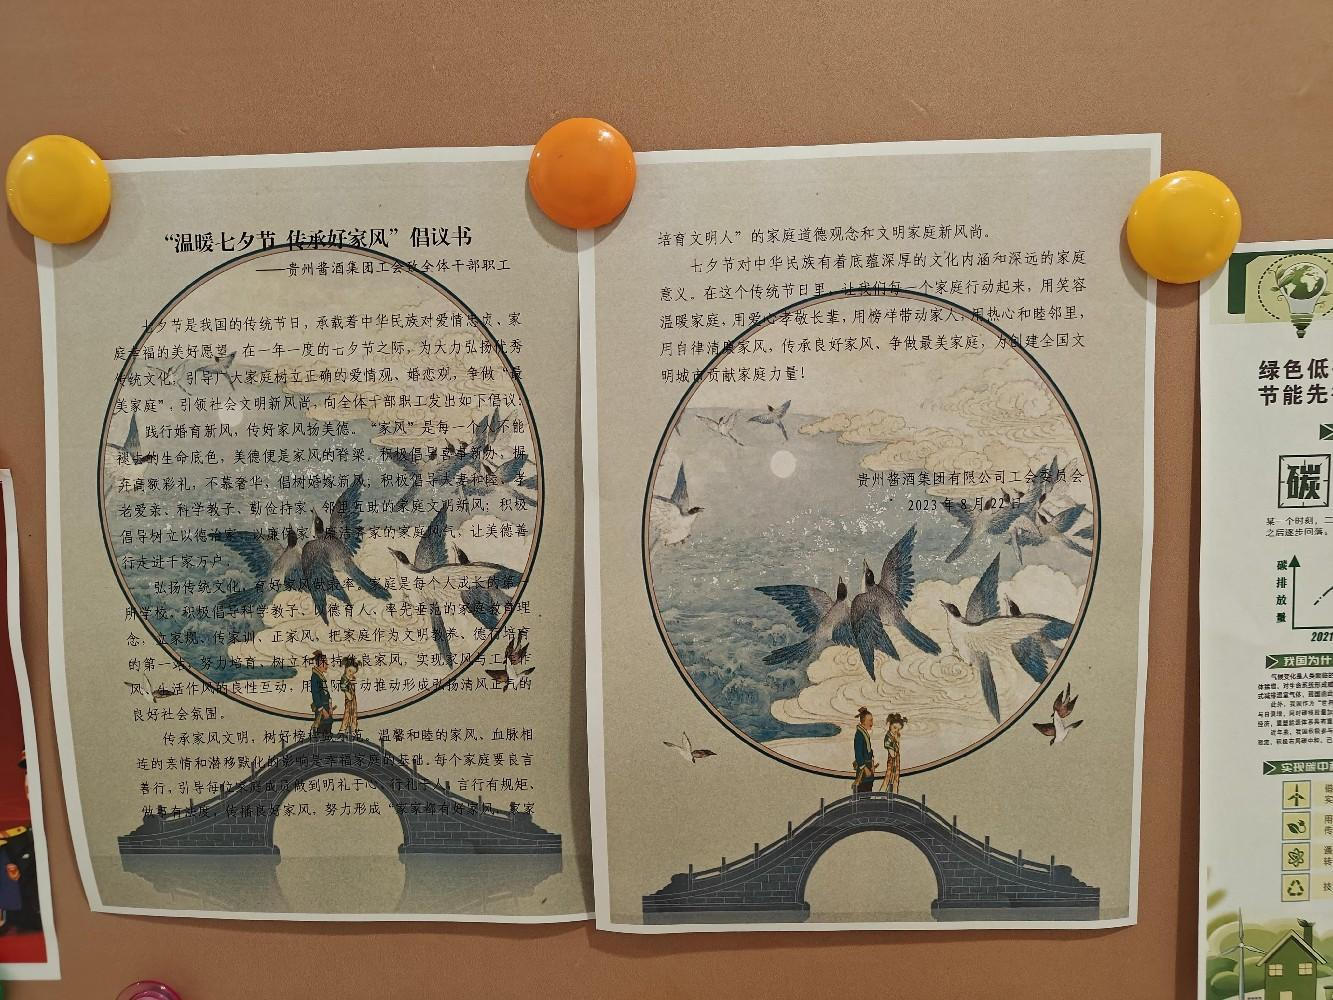 “温暖七夕节 传承好家风”倡议书
——贵州酱酒集团工会致全体干部职工
七夕节是我国的传统节日，承载着中华民族对爱情忠贞、家
庭幸福的美好愿望。在一年一度的七夕节之际，为大力弘扬优秀
传统文化，引导广大家庭树立正确的爱情观、婚恋观，争做“最
美家庭”，引领社会文明新风尚，向全体干部职工发出如下倡议：
践行婚育新风，传好家风扬美德。“家风”是每一个人不能
褪去的生命底色，美德便是家风的脊梁。积极倡导喜事新办，摒
弃高额彩礼，不慕奢华，倡树婚嫁新风；积极倡导夫妻和睦、孝
老爱亲、科学教子、勤俭持家、邻里互助的家庭文明新风；积极
倡导树立以德治家、以廉保家、廉洁齐家的家庭风气，让美德善
行走进千家万户。
弘扬传统文化，育好家风做表率。家庭是每个人成长的第一
所学校。积极倡导科学教子、以德育人、率先垂范的家庭教育理
念，立家规、传家训、正家风，把家庭作为文明教养、德行培育
的第一站，努力培育、树立和保持优良家风，实现家风与工作作
风、生活作风的良性互动，用实际行动推动形成弘扬清风正气的
良好社会氛围。
传承家风文明，树好榜样做示范。温馨和睦的家风、血脉相
连的亲情和潜移默化的影响是幸福家庭的基础。每个家庭要良言
善行，引导每位家庭成员做到明礼于心、行礼于人，言行有规矩、
做事有法度，传播良好家风，努力形成“家家都有好家风，家家
培育文明人”的家庭道德观念和文明家庭新风尚。
七夕节对中华民族有着底蕴深厚的文化内涵和深远的家庭
意义。在这个传统节日里，让我们每一个家庭行动起来，用笑容
温暖家庭，用爱心孝敬长辈，用榜样带动家人，用热心和睦邻里，
用自律清廉家风，传承良好家风、争做最美家庭，为创建全国文
明城市贡献家庭力量！
贵州酱酒集团有限公司工会委员会
2023年8月22日
绿色低
节能先
碳
某一个时刻，二
之后逐步回落。
碳排放量
2021
我国为什
实现碳中